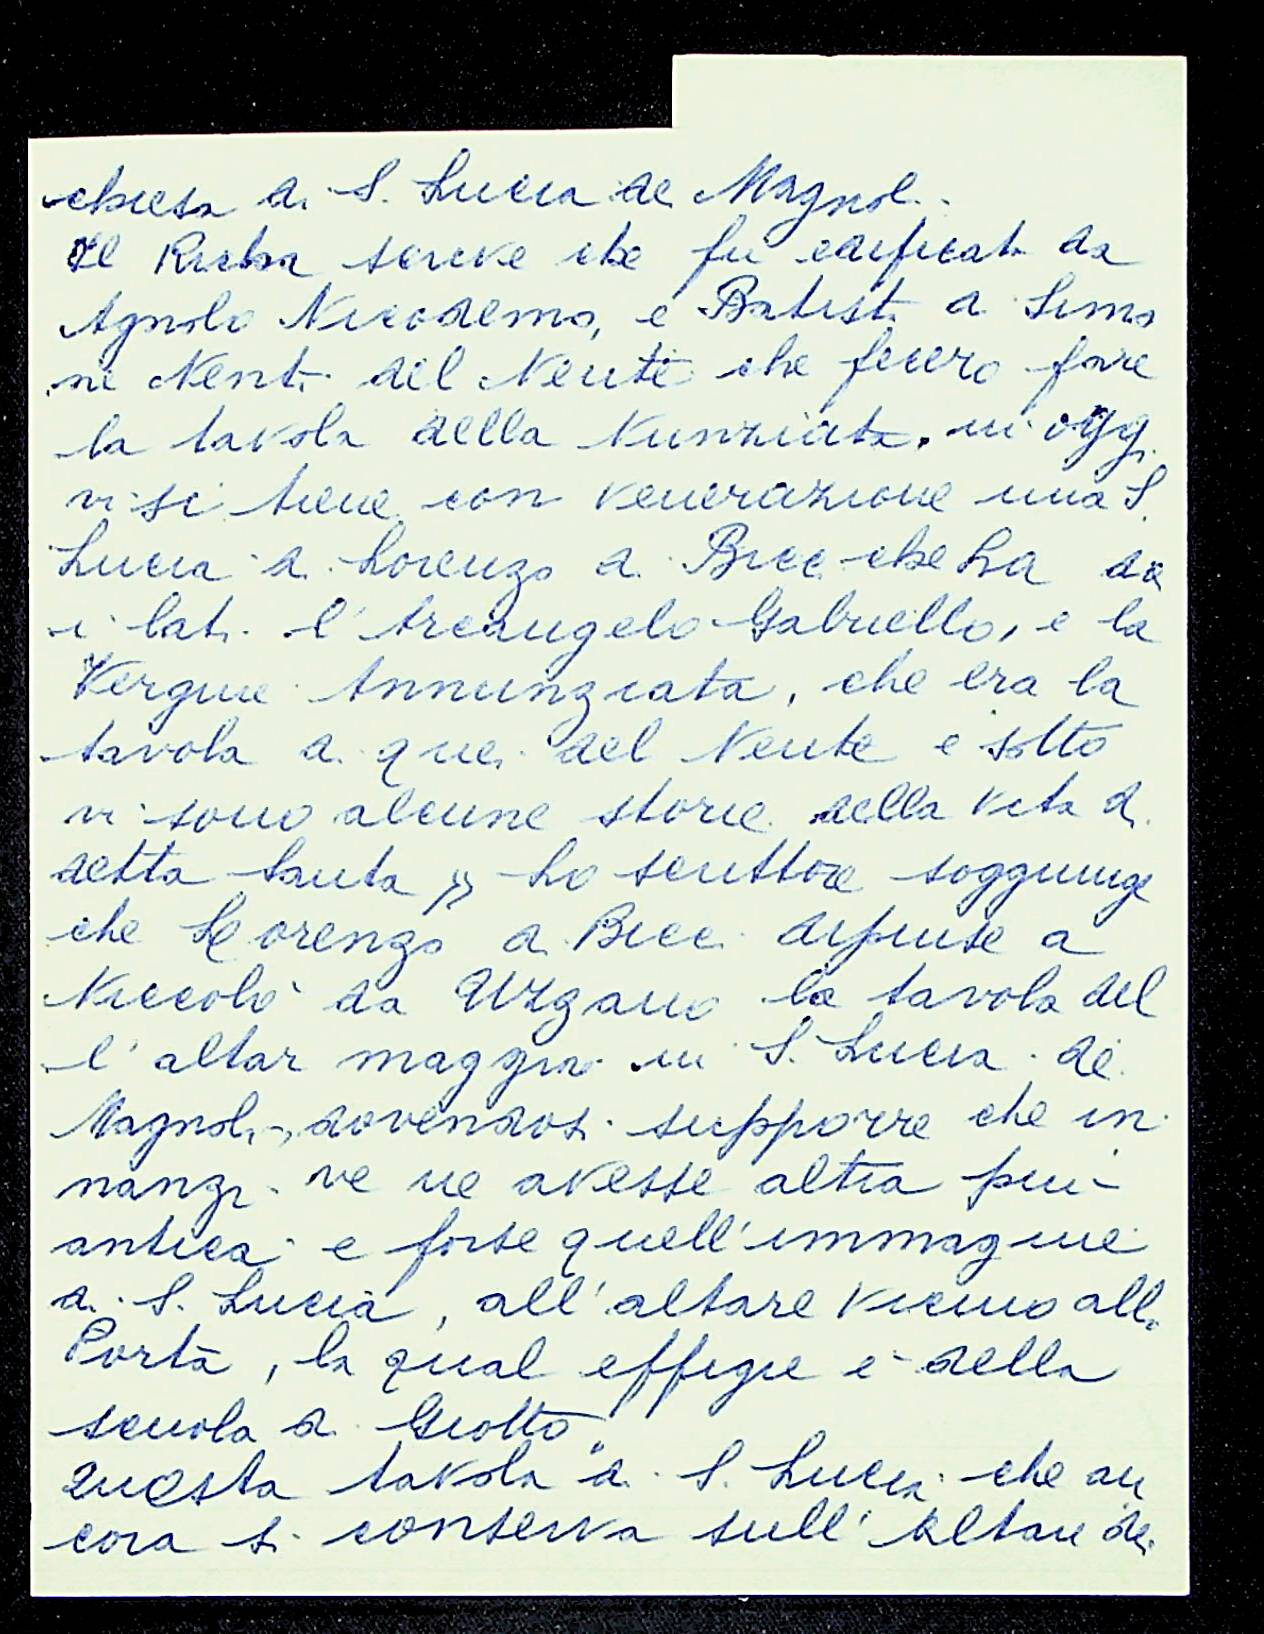 chiesa di S. Lucia de Magnoli.
Il Richa scrive che fu edificata da
Agnolo Nicodemo, e Batista di Simo
ne Nenti del Nente che fecero fare
la tavola della Nunziata. in oggi
vi si tiene con venerazione una S.
Lucia di Lorenzo di Bicci che ha da
i lati l'Arcangelo Gabriello, e la
Vergine Annunziata, che era la
tavola di quei del Nente e sotto
vi sono alcune storie della vita di
detta Santa » Lo scrittore soggiunge
che Lorenzo di Bicci dipinse a
Niccolò da Uzzano la tavola del
l'altar maggior in S. Lucia de
Magnoli, dovendosi supporre che in
nanzi ve ne avesse altra più
antica e forse quell'immagine
di S. Lucia, all'altare vicino alla
Porta, la qual effigie è della
scuola di Giotto.
Questa tavola di S. Lucia che an
cora si conserva sull'Altare dei